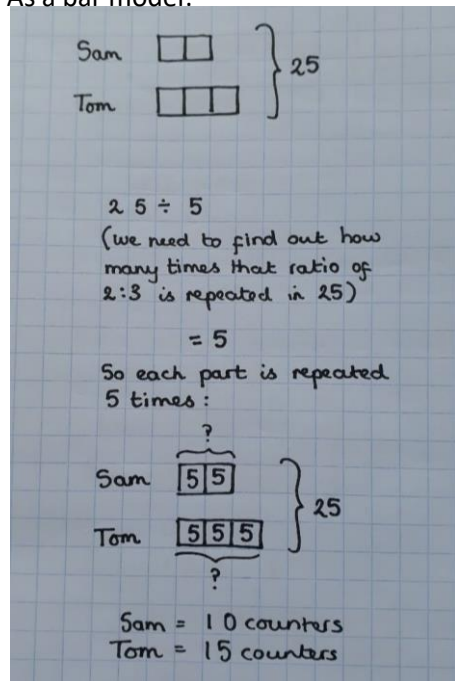 As a bar model:
Sam
25
Tom
25 ÷ 5
(we need to find out how
many times that ratio of
2:3 is repeated in 25)
= 5
So each part is repeated
5 times:
?
Sam 5 5
25
Tom 5 5 5
?
Sam = 10 counters
Tom = 15 counters